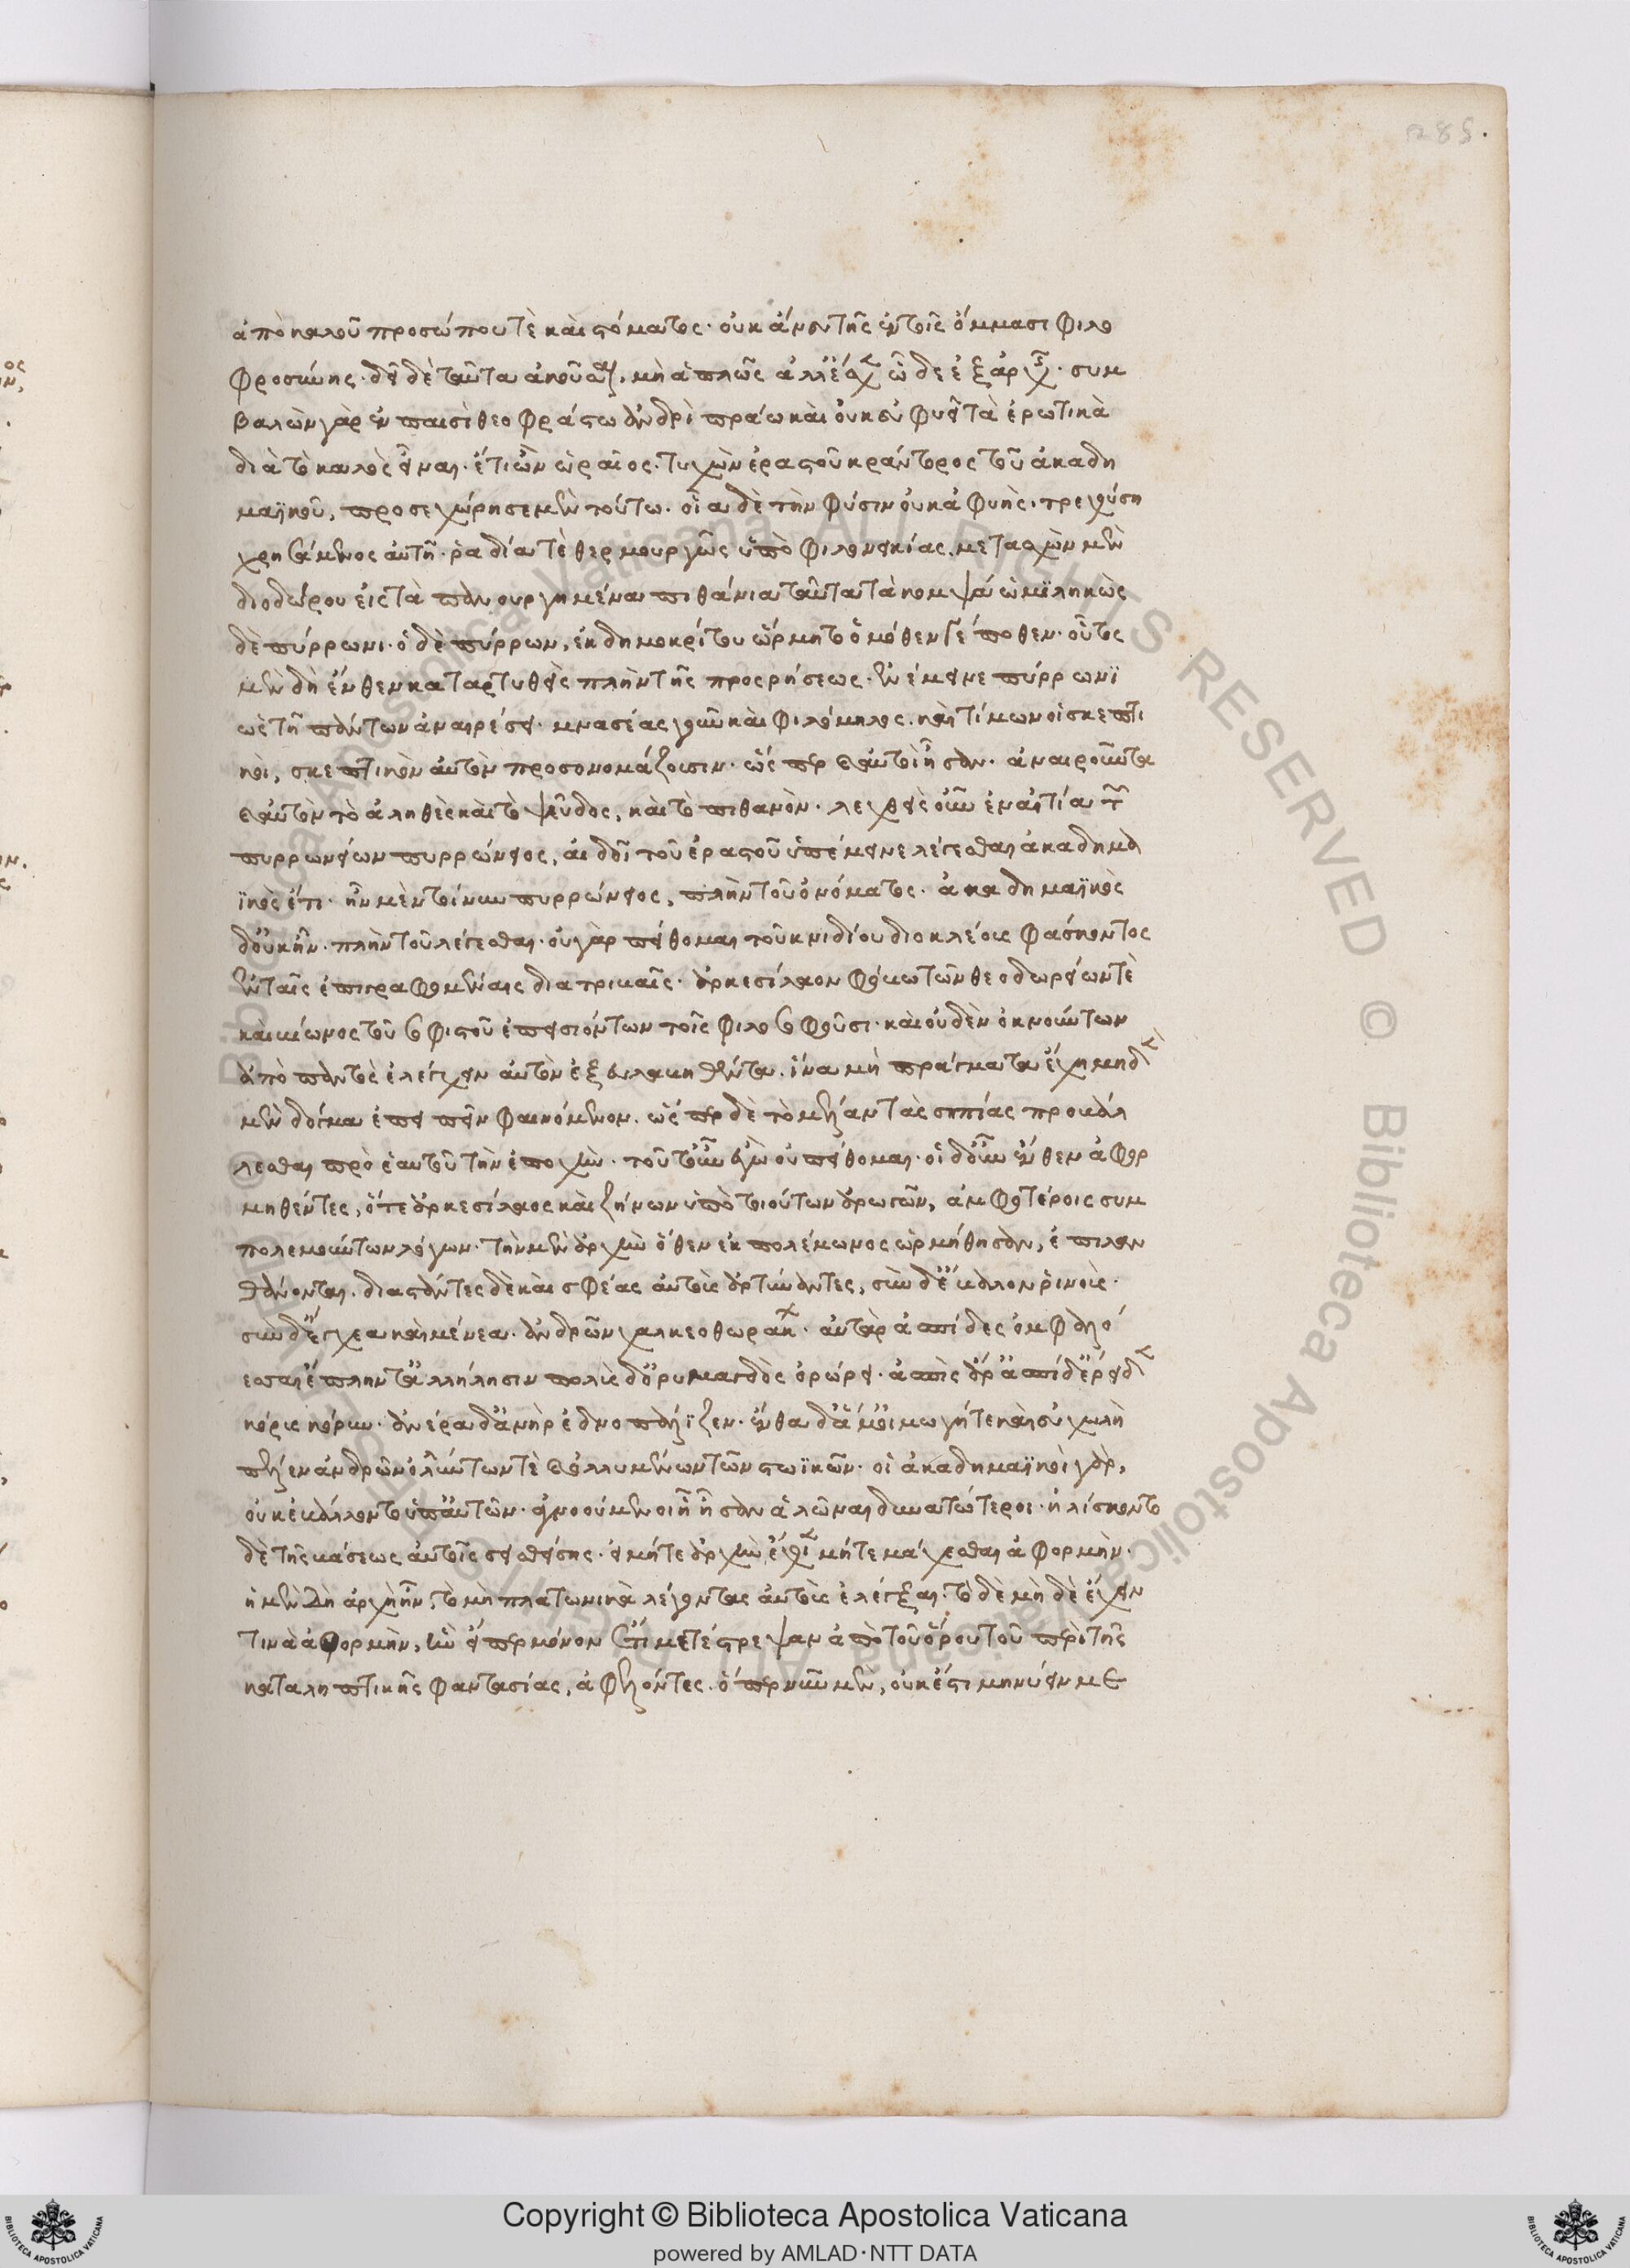 285.
ἀπὸ καλοῦ προσώπου τὲ καὶ στόματος· οὐκ ἄνευ τῆς ἐν τοῖς ὄμμασι φιλο
φροσύνης· δεῖ δὲ ταῦτα ἀκοῦσαι, μὴ ἁπλῶς ἀλλ' ἔσχεν ὧδε ἐξ ἀρχῆς· συμ
βαλὼν γὰρ ἐν παισὶ θεοφράστω ἀνδρὶ πράω καὶ οὐκ ἀφυεῖ τὰ ἐρωτικὰ
διὰ τὸ καλὸς εἶναι· ἔτι ὢν ὡραῖος· τυχὼν ἐραστοῦ κράντορος τοῦ ἀκαδη
μαϊκοῦ, προσεχώρησε μὲν τούτω· οἷα δὲ τὴν φύσιν οὐκ ἀφυὴς· τρεχούση
χρησάμενος αὐτῆ· ῥαδία τὲ θερμουργῶς ὑπὸ φιλονεικίας. μετασχὼν μὲν
διοδώρου εἰς τὰ πεπανουργημένα πιθάνια ταῦτα τὰ κομψά ὡμιληκὼς
δὲ πύρρωνι· ὁ δὲ πύρρων, ἐκ δημοκρίτου ὥρμητο ὁμόθεν γέ ποθεν· οὗτος
μὲν δὴ ἔνθεν καταρτυθεὶς πλὴν τῆς προσρήσεως· ἐνέμεινε πύρρωνϊ
ὡς τῆ πάντων ἀναιρέσει· μνασέας γοῦν καὶ φιλόμηλος. καὶ τίμων οἱ σκεπτι
κοὶ, σκεπτικὸν αὐτὸν προσονομάζουσιν· ὥσπερ καὶ αὐτοὶ ἦσαν· ἀναιροῦντα
καὶ αὐτὸν τὸ ἀληθὲς καὶ τὸ ψεῦδος, καὶ τὸ πιθανὸν· λεχθεὶς οὖν ἐναντία τῶν
πυρρωνείων πυρρώνειος, αἰδοῖ τοῦ ἐραστοῦ ὑπέμεινε λέγεσθαι ἀκαδημα
ϊκὸς ἔτι· ἦν μὲν τοίνυν πυρρώνειος, πλὴν τοῦ ὀνόματος· ἀκαδημαϊκὸς
δ' οὐκ ἦν· πλὴν τοῦ λέγεσθαι· οὐ γὰρ πείθομαι τοῦ κνιδίου διοκλέους φάσκοντος
ἐν ταῖς ἐπιγραφομέναις διατριβαῖς· ἀρκεσίλαον φόβω τῶν θεοδωρείων τὲ
καὶ βίωνος τοῦ σοφιστοῦ ἐπεισιόντων τοῖς φιλοσοφοῦσι· καὶ οὐδὲν ὀκνούντων
ἀπὸ παντὸς ἐλέγχειν αὐτὸν ἐξευλαβηθέντα. ἵνα μὴ πράγματα ἔχη μηδὲν
μὲν δόγμα ἐπειπεῖν φαινόμενον. ὥσπερ δὲ τὸ μέλαν τὰς σηπίας προβάλ
λεσθαι πρὸ ἑαυτοῦ τὴν ἐποχὴν· τοῦτ' οὖν ἐγὼ οὐ πείθομαι· οἱ δ' οὖν ἔνθεν ἀφορ
μηθέντες, ὅτε ἀρκεσίλαος καὶ ζήνων ὑπὸ τοιούτων ἀρωγῶν, ἀμφοτέροις συμ
πολεμούντων λόγων· τὴν μὲν ἀρχὴν ὅθεν ἐκ πολέμωνος ὡρμήθησαν, ἐπιλαν
θάνονται. διαστάντες δὲ καὶ σφέας αὐτοὺς ἀρτύναντες, σὺν δ' ἔβαλον ῥινοὺς·
σὺν δ' ἔγχεα καὶ μένεα· ἀνδρῶν χαλκεοθωράκων· αὐτὰρ ἀσπίδες ὀμφαλό
εσσαι ἔπληντ' ἀλλήλησιν πολὺς δ' ὀρυμαγδὸς ὀρώρει· ἀσπὶς ἄρ' ἀσπίδ' ἔρειδε
κόρυς κόρυν· ἀνέρα δ' ἀνὴρ ἐδνοπάλιζεν· ἔνθα δ' ἅμ' οἰμωγή τε καὶ εὐχωλὴ
πέλεν ἀνδρῶν ὀλλύντων τὲ καὶ ὀλλυμένων τῶν στωϊκῶν· οἱ ἀκαδημαϊκοὶ γὰρ,
οὐκ ἐβάλλοντο ὑπ' αὐτῶν· ἀγνοούμενοι ἧ ἦσαν ἁλῶναι δυνατώτεροι· ἡλίσκοντο
δὲ τῆς βάσεως αὐτοῖς σεισθείσης· εἰ μήτε ἀρχὴν ἔχοιεν μήτε μάχεσθαι ἀφορμὴν·
ἡ μὲν δὴ ἀρχὴ ἦν, τὸ μὴ πλατωνικὰ λέγοντας αὐτοὺς ἐλέγξαι· τὸ δὲ μὴ δὲ ἔχειν
τινὰ ἀφορμὴν, ἦν εἴπερ μόνον ἔτι μετέστρεψαν ἀπὸ τοῦ ὅρου τοῦ περὶ τῆς
καταληπτικῆς φαντασίας, ἀφελόντες. ὅπερ νῦν μὲν, οὐκ ἔστι μηνύειν με